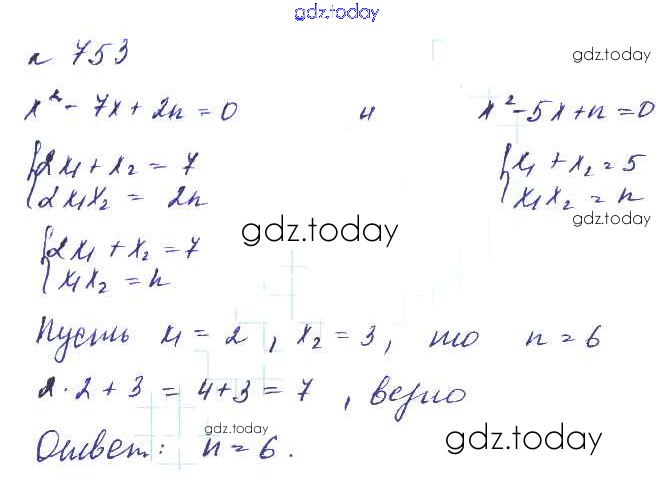 gdz.today
№ 753
gdz.today
x² - 7x + 2n = 0 и x² - 5x + n = 0
{2x₁ + x₂ = 7 {x₁ + x₂ = 5
{2x₁x₂ = 2n {x₁x₂ = n
gdz.today
{2x₁ + x₂ = 7
gdz.today
{x₁x₂ = n
Пусть x₁ = 2, x₂ = 3, то n = 6
2·2 + 3 = 4+3 = 7, верно
gdz.today
Ответ: n = 6.
gdz.today